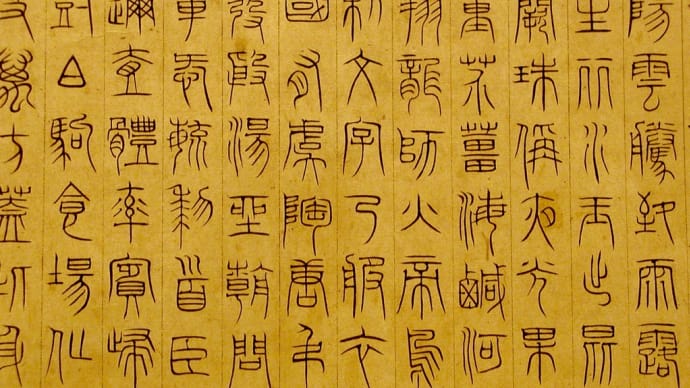 陽雲騰致雨露
生麗水玉出崑
闕珠稱夜光果
重芥薑海鹹河
翔龍師火帝鳥
制文字乃服衣
國有虞陶唐弔
發殷湯坐朝問
章愛育黎首臣
邇壹體率賓歸
樹白駒食場化
及萬方蓋此身